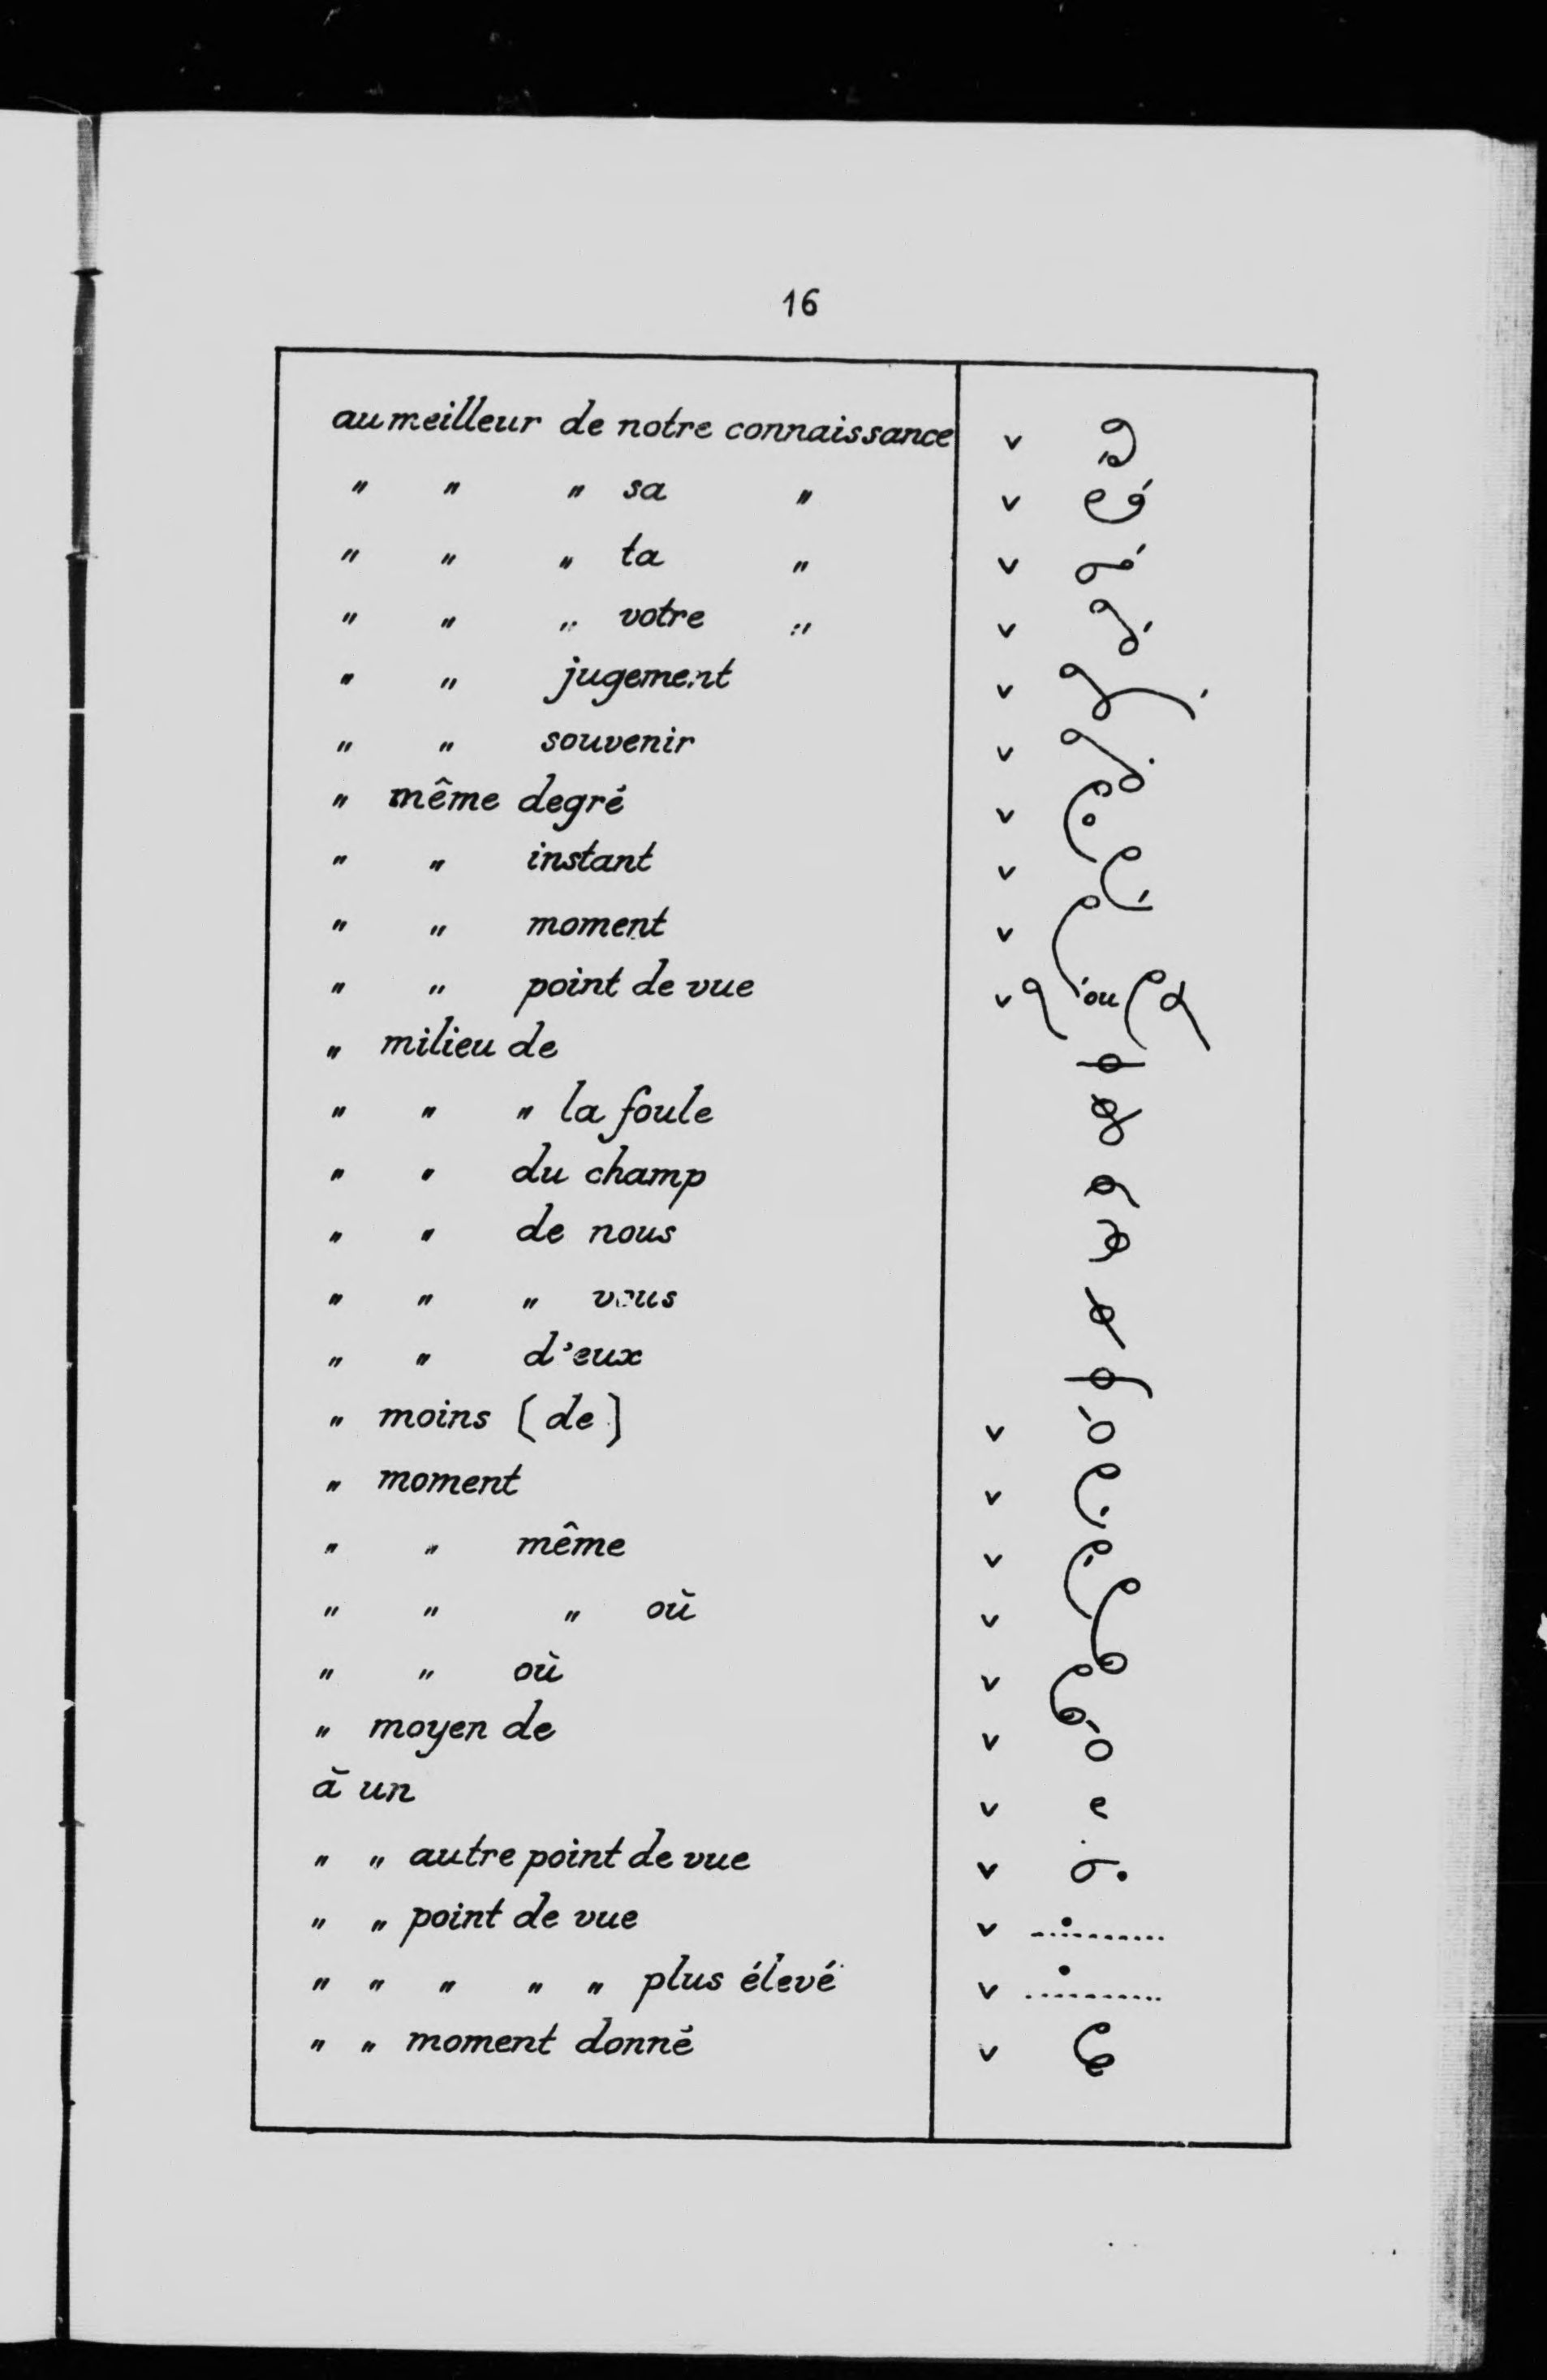 16
au meilleur de notre connaissance v
" " " sa " v
" " " ta " v
" " " votre " v
" " jugement v
" " souvenir v
" même degré v
" " instant v
" " moment v
" " point de vue v ou
" milieu de
" " " la foule
" " du champ
" " de nous
" " " vous
" " d'eux
" moins (de) v
" moment v
" " même v
" " " où v
" " où v
" moyen de v
à un v
" " autre point de vue v
" " point de vue v
" " " " " plus élevé v
" " moment donné v